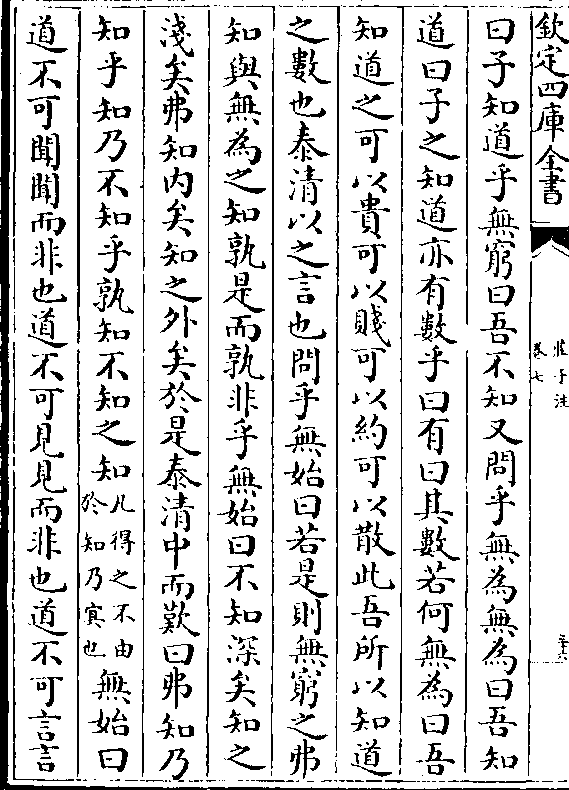 欽定四庫全書
莊子注
卷七
三十六
曰子知道乎無窮曰吾不知又問乎無為無為曰吾知
道曰子之知道亦有數乎曰有曰其數若何無為曰吾
知道之可以貴可以賤可以約可以散此吾所以知道
之數也泰清以之言也問乎無始曰若是則無窮之弗
知與無為之知孰是而孰非乎無始曰不知深矣知之
淺矣弗知內矣知之外矣於是泰清中而歎曰弗知乃
知乎知乃不知乎孰知不知之知凡得之不由於知乃冥也無始曰
道不可聞聞而非也道不可見見而非也道不可言言